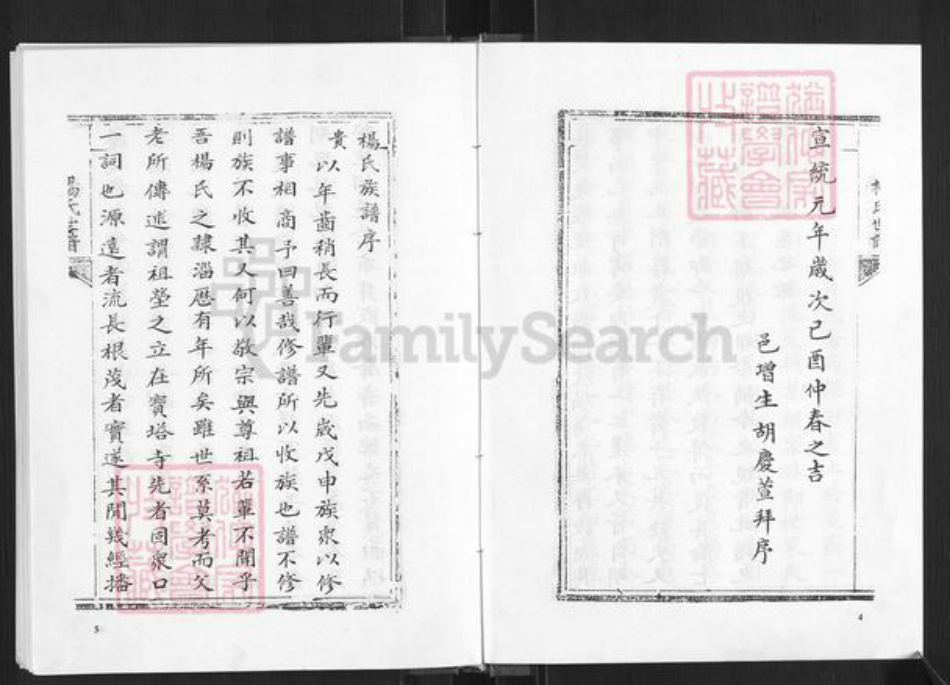 宣統元年歲次己酉仲春之吉
邑增生胡慶萱拜序
4
楊氏族譜序
貴以年齒稍長而行輩又先歲戊申族眾以修
譜事相商予曰善哉修譜所以收族也譜不修
則族不收其人何以敬宗與尊祖若輩不聞乎
吾楊氏之隸淄歷有年所矣雖世系莫考而父
老所傳述謂祖塋之立在寶塔寺先者固眾口
一詞也源遠者流長根茂者實遂其間幾經播
5
FamilySearch